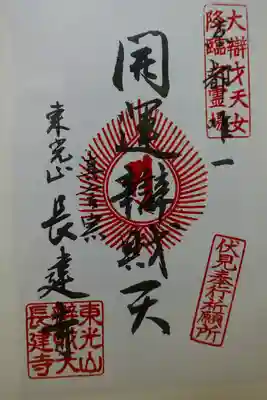 大辯才天女
降臨霊場
京都唯一
開運辯財天
東光山
長建寺
伏見奉行祈願所
東光山
辯財天
長建寺